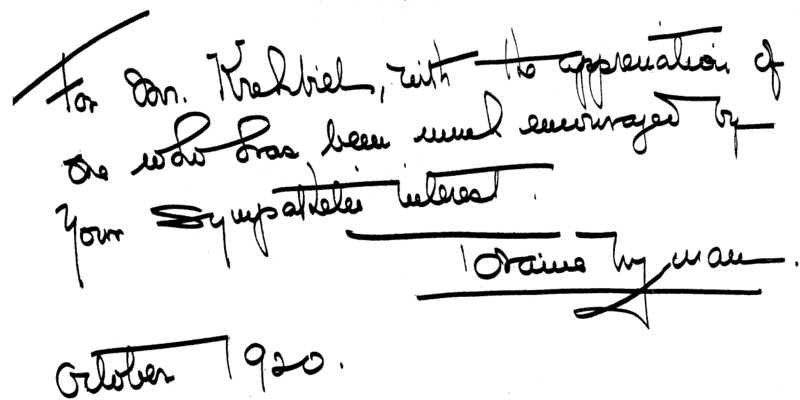 For Mr. Krehbiel, with the appreciation of
one who has been much encouraged by
your sympathetic interest.
Loraine Wyman.
October 1920.